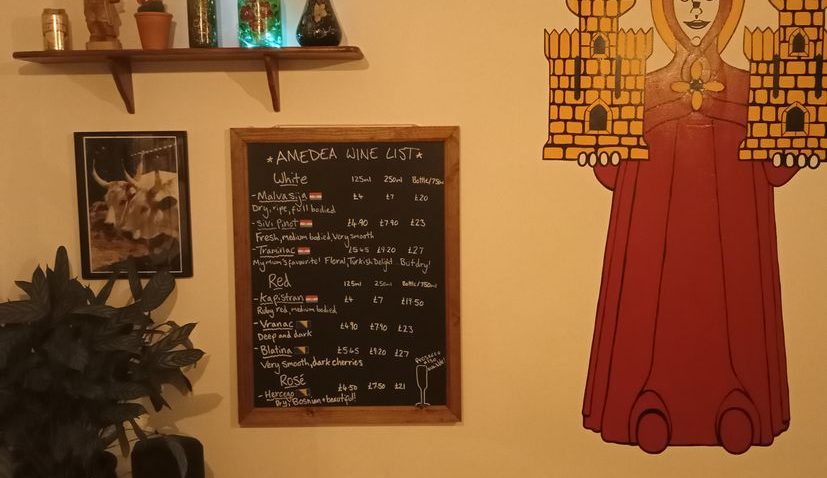 *AMEDEA WINE LIST*
White 125ml 250ml Bottle/750ml
- Malvasija £4 £7 £20
Dry, ripe, full bodied
- Sivi Pinot £4.90 £7.90 £23
Fresh, medium bodied, very smooth
- Traminac £5.45 £9.20 £27
My Mum's favourite! Floral, Turkish Delight.. But dry!
Red 125ml 250ml Bottle/750ml
- Kapistran £4 £7 £19.50
Ruby red, medium bodied
- Vranac £4.90 £7.90 £23
Deep and dark
- Blatina £5.45 £9.20 £27
Very smooth, dark cherries
Rosé
- Hercego £4.50 £7.50 £21
Dry, Bosnian + beautiful!
Prosecco